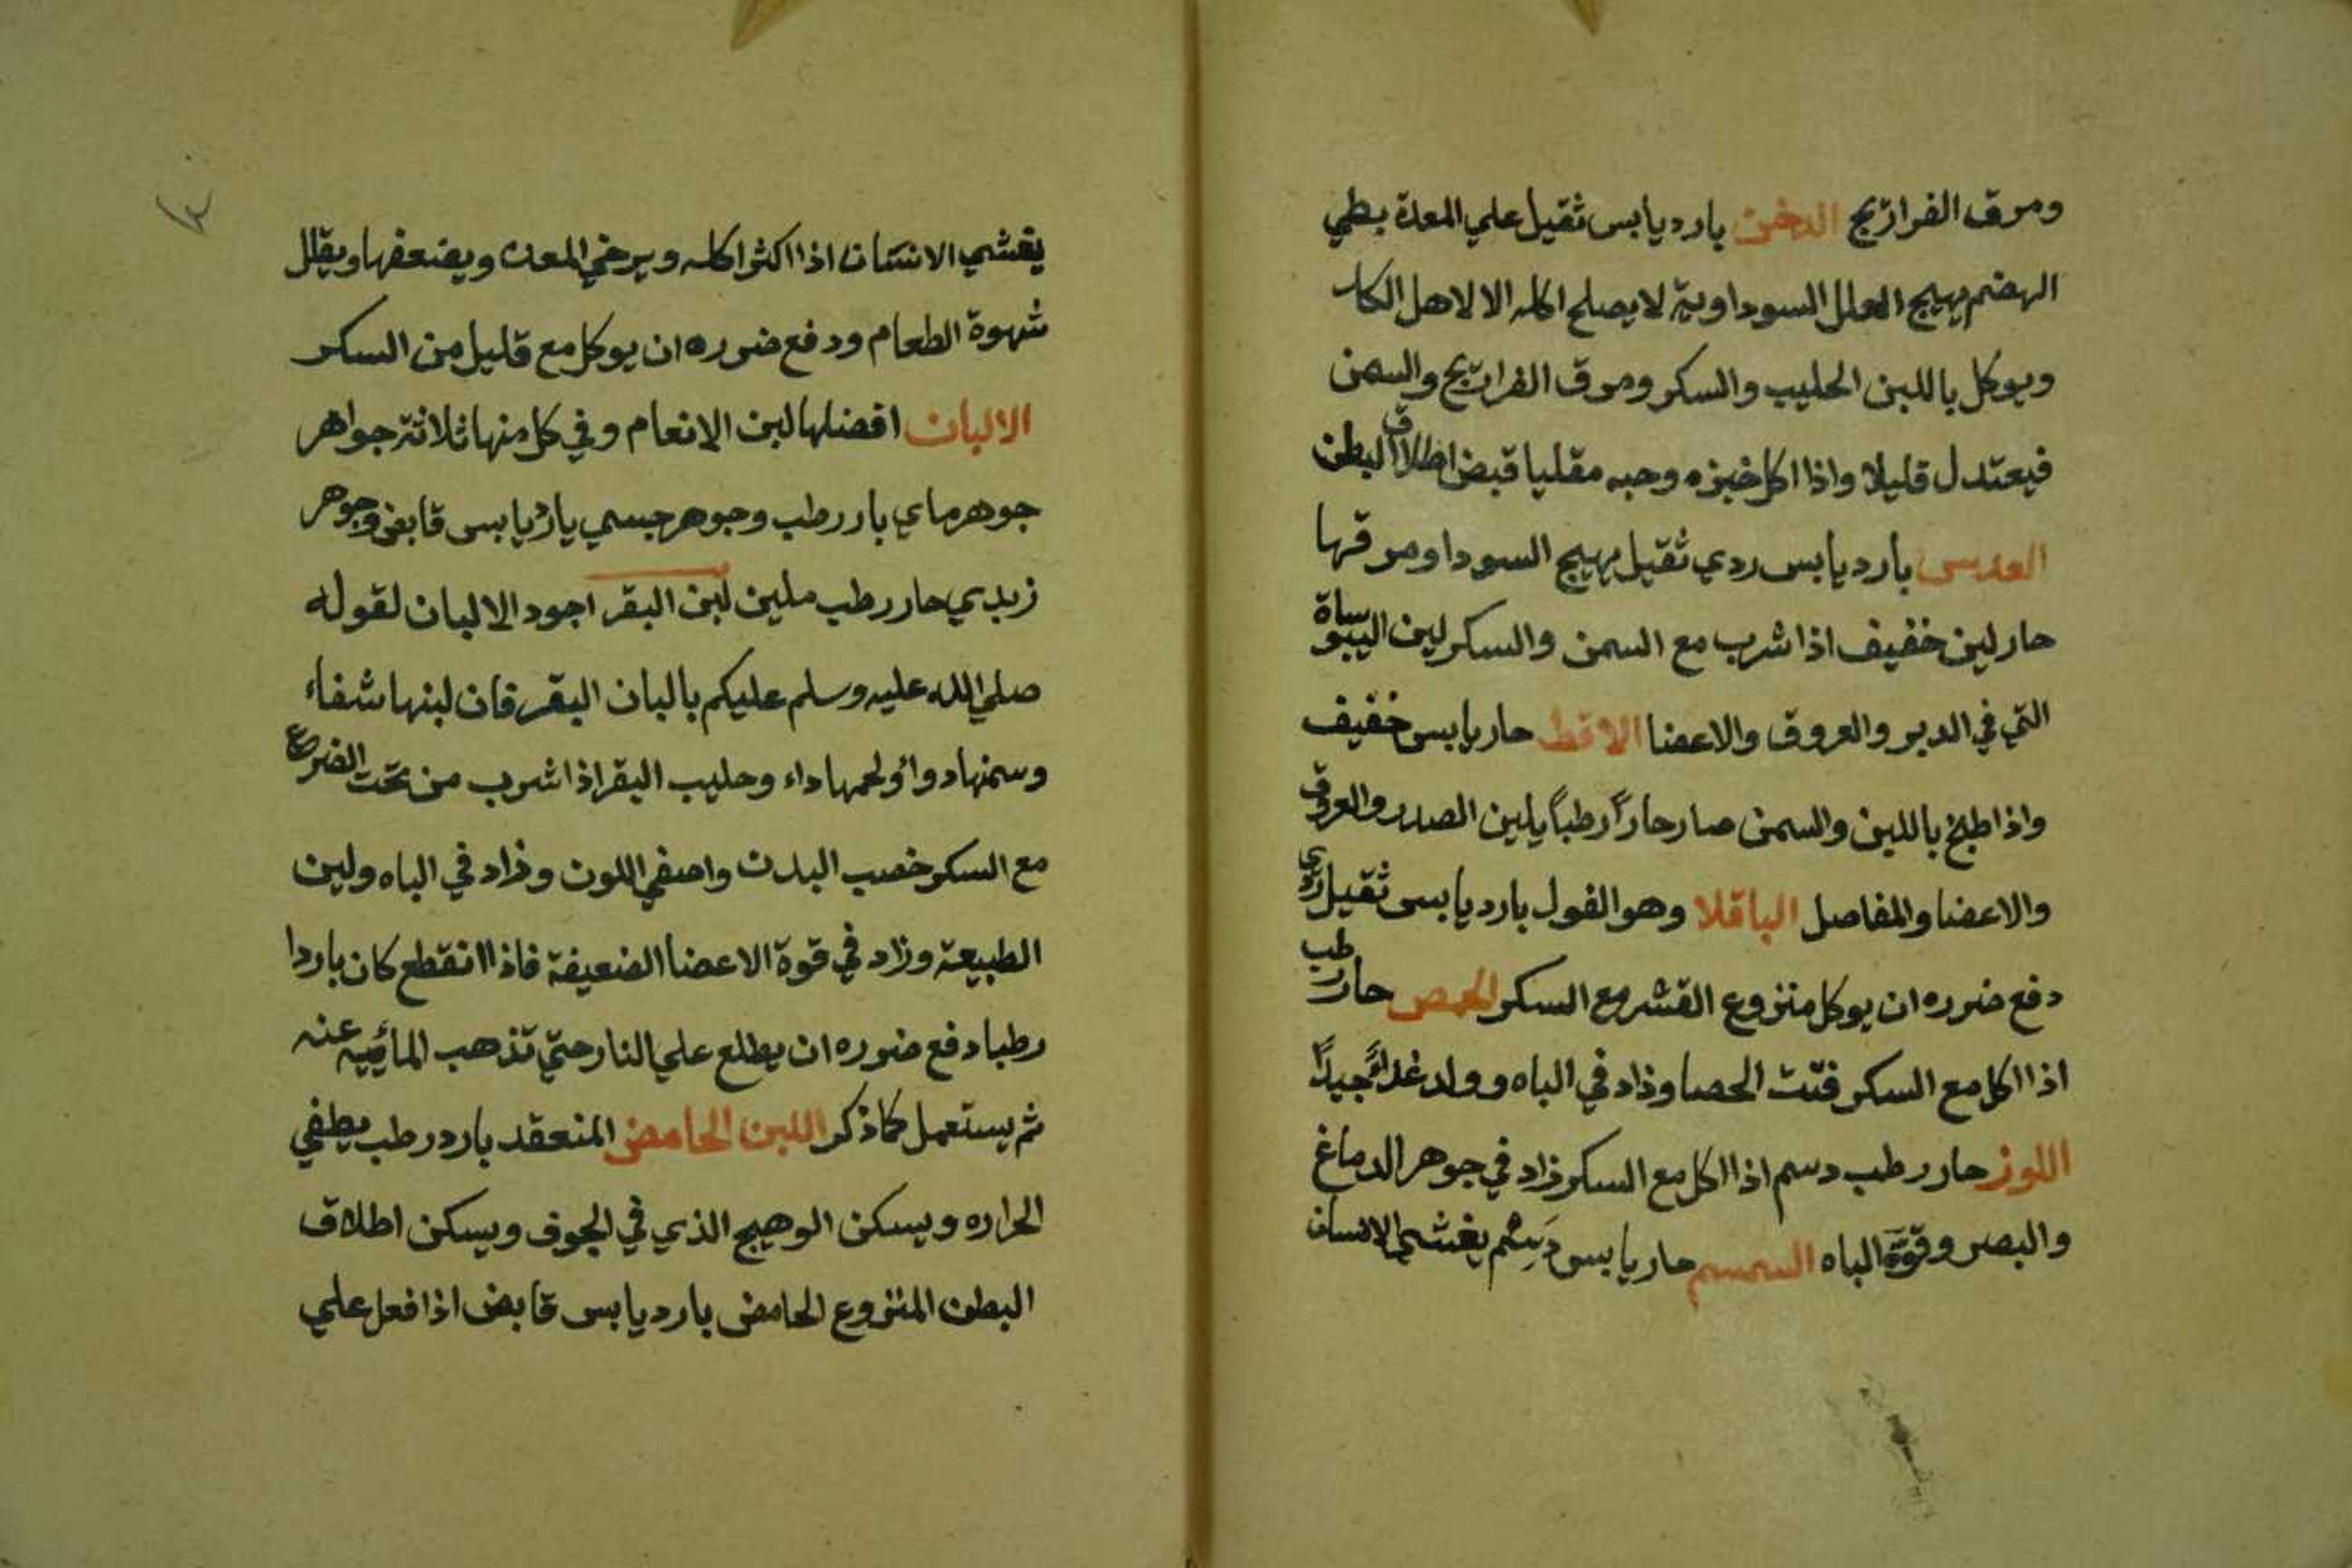 ومرق الفراريج الدخن بارد يابس ثقيل علي المعدة بطي
الهضم يهيج العلل السوداوية لا يصلح اكله الا لاهل الكد
ويوكل باللبن الحليب والسكر ومرق الفراريج والسمن
فيعتدل قليلا واذا اكل خبزه وحبه مقليا قبض اطلاق البطن
العدس بارد يابس ردي ثقيل يهيج السودا ومرقها
حار لين خفيف اذا شرب مع السمن والسكر لين اليبوساة
التي في الدبر والعروق والاعضا الاقط حار يابس خفيف
واذا طبخ باللبن والسمن صار حاراً رطباً يلين الصدر والعروق
والاعضا والمفاصل الباقلا وهو الفول بارد يابس ثقيل ردي
دفع ضرره ان يوكل منزوع القشر مع السكر الحمص حار رطب
اذا اكل مع السكر فتت الحصا وزاد في الباه وولد غداً جيداً
اللوز حار رطب دسم اذا اكل مع السكر زاد في جوهر الدماغ
والبصر وقوة الباه السمسم حار يابس دسم يغشي الانسان
يغشي الانسان اذا اكثر اكله ويرخي المعده ويضعفها ويقلل
شهوة الطعام ودفع ضرره ان يوكل مع قليل من السكر
الالبان افضلها لبن الانعام وفي كل منها ثلاثة جواهر
جوهر ماي بارد رطب وجوهر جسمي بارد يابس قابض وجوهر
زبدي حار رطب ملين لبن البقر اجود الالبان لقوله
صلي الله عليه وسلم عليكم بالبان البقر فان لبنها شفاء
وسمنها دواء ولحمها داء وحليب البقر اذا شرب من تحت الضرع
مع السكر خصب البدن واصفي اللون وزاد في الباه ولين
الطبيعة وزاد في قوة الاعضا الضعيفة فاذا انقطع كان باردا
رطبا دفع ضرره ان يطلع علي النار حتي تذهب المائيه عنه
ثم يستعمل كما ذكر اللبن الحامض المنعقد بارد رطب يطفي
الحراره ويسكن الوهيج الذي في الجوف ويسكن اطلاق
البطن المنزوع الحامض بارد يابس قابض اذا فعل علي